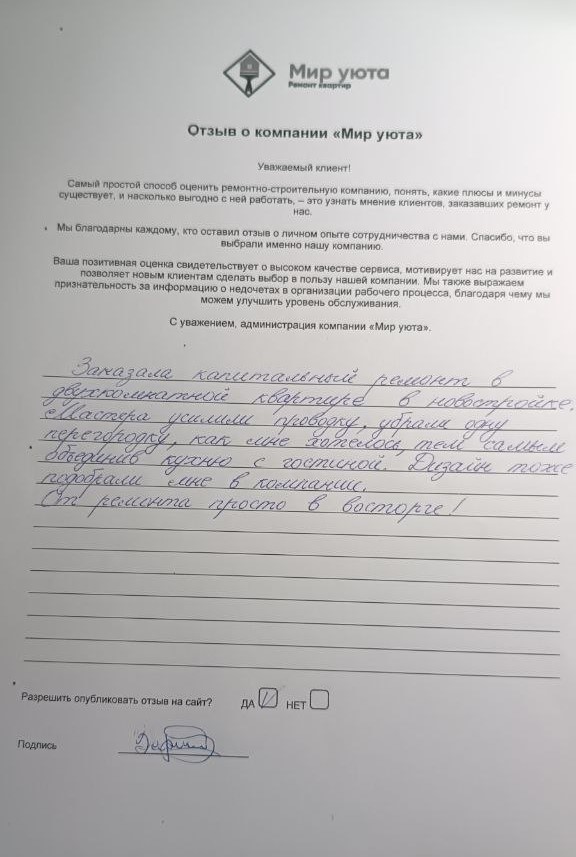 Мир уюта
Ремонт квартир
Отзыв о компании «Мир уюта»
Уважаемый клиент!
Самый простой способ оценить ремонтно-строительную компанию, понять, какие плюсы и минусы
существует, и насколько выгодно с ней работать, – это узнать мнение клиентов, заказавших ремонт у
нас.
Мы благодарны каждому, кто оставил отзыв о личном опыте сотрудничества с нами. Спасибо, что вы
выбрали именно нашу компанию.
Ваша позитивная оценка свидетельствует о высоком качестве сервиса, мотивирует нас на развитие и
позволяет новым клиентам сделать выбор в пользу нашей компании. Мы также выражаем
признательность за информацию о недочетах в организации рабочего процесса, благодаря чему мы
можем улучшить уровень обслуживания.
С уважением, администрация компании «Мир уюта».
Заказала капитальный ремонт в
двухкомнатной квартире в новостройке.
Мастера усилили проводку, убрали одну
перегородку, как мне хотелось, тем самым
объединив кухню с гостиной. Дизайн тоже
подобрали мне в компании.
От ремонта просто в восторге!
Разрешить опубликовать отзыв на сайт? ДА НЕТ
Подпись